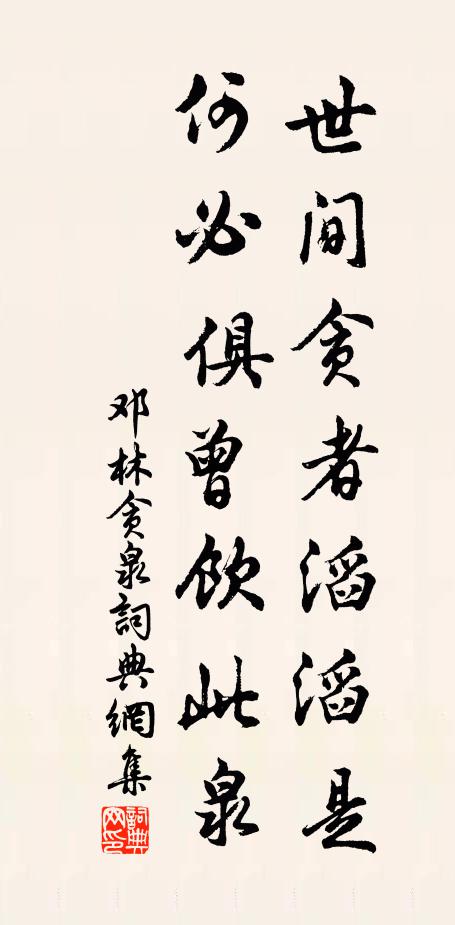 世间贪者滔滔是
何必俱曾饮此泉
邓林贪泉詞典網集
詞典网印